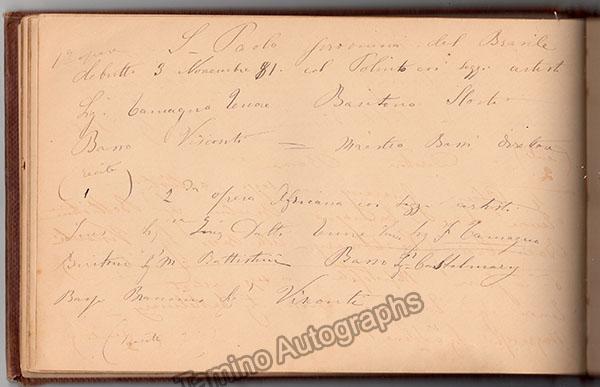 1ª opera S. Paolo provincia del Brasile
debutto 3 Novembre 81. col Poliuto coi segg. artisti
Sig. Tamagno Tenore Baritono Storti
Basso Visconti = Maestro Bassi Direttore
(recite
1)
2da opera Africana coi segg. artisti
Ines Sig. Dalti Tenore Sig. F. Tamagno
Baritono Sig. M. Battistini Basso Sig. Castelmary
Basso Sig. Visconti
(recite
Tamino Autographs